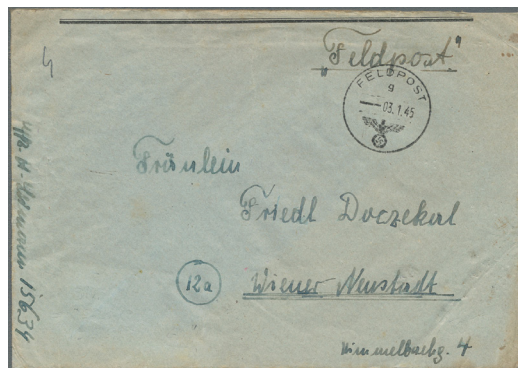 "Feldpost"
FELDPOST
g
03.1.45
Fräulein
Friedl Doczekal
12a
Wiener Neustadt
4
15634